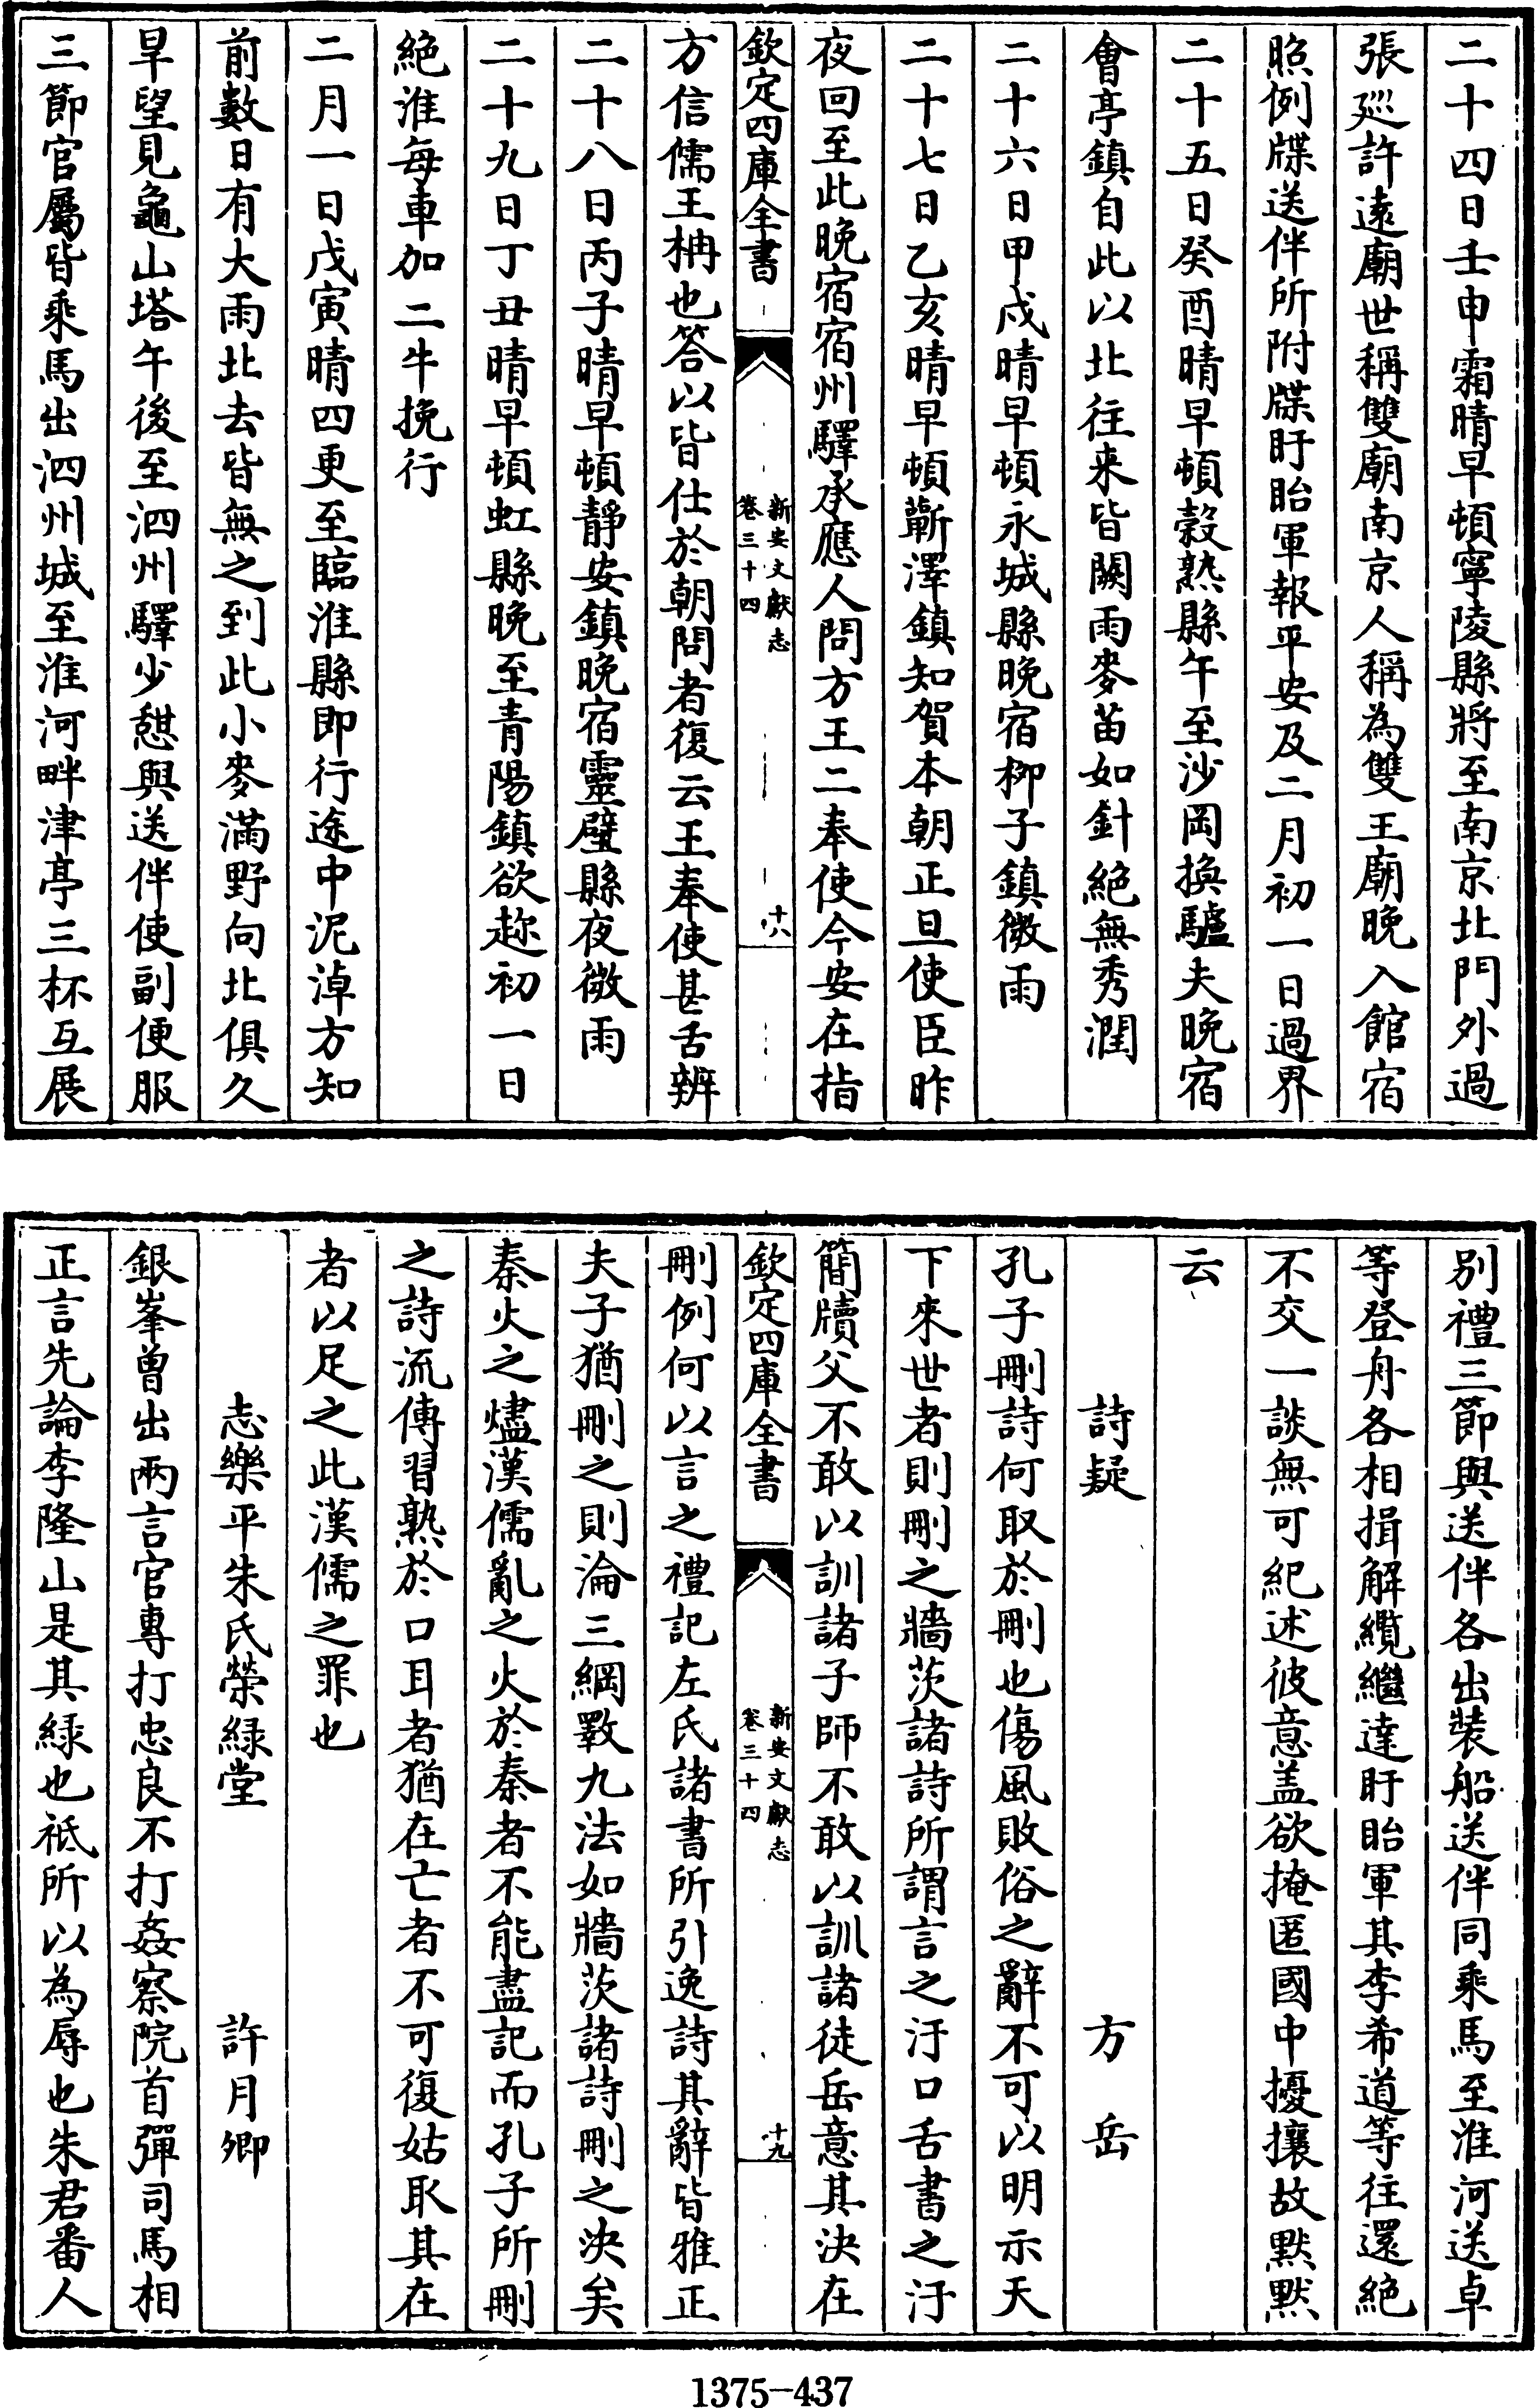 二十四日壬申霜晴早頓寧陵縣將至南京北門外過
張巡許遠廟世稱雙廟南京人稱為雙王廟晚入館宿
照例牒送伴所附牒盱眙軍報平安及二月初一日過界
二十五日癸酉晴早頓穀熟縣午至沙岡換驢夫晚宿
會亭鎮自此以北往来皆闕雨麥苗如針絶無秀潤
二十六日甲戌晴早頓永城縣晚宿栁子鎮微雨
二十七日乙亥晴早頓蘄澤鎮知賀本朝正旦使臣昨
夜回至此晚宿宿州驛承應人問方王二奉使今安在指
欽定四庫全書
新安文獻志
卷三十四
十八
方信儒王柟也答以皆仕於朝問者復云王奉使甚舌辨
二十八日丙子晴早頓靜安鎮晚宿靈璧縣夜微雨
二十九日丁丑晴早頓虹縣晚至青陽鎮欲趂初一日
絶淮每車加二牛挽行
二月一日戊寅晴四更至臨淮縣即行途中泥淖方知
前數日有大雨北去皆無之到此小麥滿野向北俱久
旱望見龜山塔午後至泗州驛少憇與送伴使副便服
三節官屬皆乘馬出泗州城至淮河畔津亭三杯互展
別禮三節與送伴各出裝船送伴同乘馬至淮河送卓
等登舟各相揖解纜繼達盱眙軍其李希道等往還絶
不交一談無可紀述彼意盖欲掩匿國中擾攘故默默
云
詩疑 方岳
孔子刪詩何取於刪也傷風敗俗之辭不可以明示天
下來世者則刪之牆茨諸詩所謂言之汙口舌書之汙
簡牘父不敢以訓諸子師不敢以訓諸徒岳意其決在
欽定四庫全書
新安文獻志
卷三十四
十九
刪例何以言之禮記左氏諸書所引逸詩其辭皆雅正
夫子猶刪之則淪三綱斁九法如牆茨諸詩刪之決矣
秦火之燼漢儒亂之火於秦者不能盡記而孔子所刪
之詩流傳習熟於口耳者猶在亡者不可復姑取其在
者以足之此漢儒之罪也
志樂平朱氏榮緑堂 許月卿
銀峯曾出兩言官專打忠良不打姦察院首彈司馬相
正言先論李隆山是其緑也祗所以為辱也朱君番人
1375-437